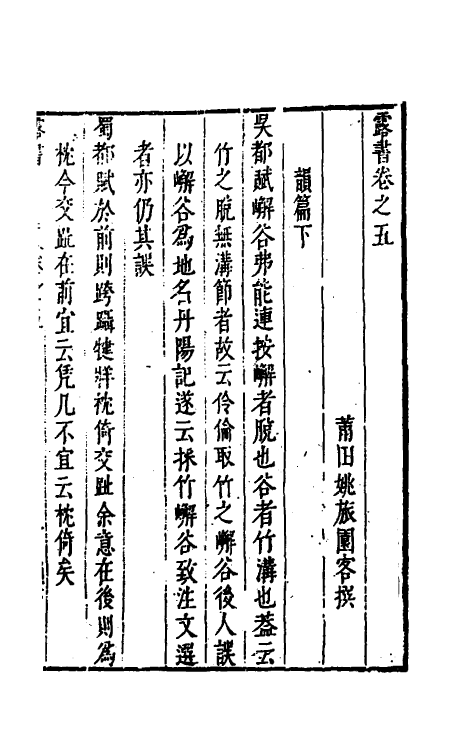 露書卷之五
莆田姚旅園客撰
韻篇下
吳都賦嶰谷弗能連按嶰者脫也谷者竹溝也蓋云
竹之脫無溝節者故云伶倫取竹之嶰谷後人誤
以嶰谷為地名丹陽記遂云採竹嶰谷致注文選
者亦仍其誤
蜀都賦於前則跨躡犍牂枕倚交趾余意在後則為
枕今交趾在前宜云凭几不宜云枕倚矣